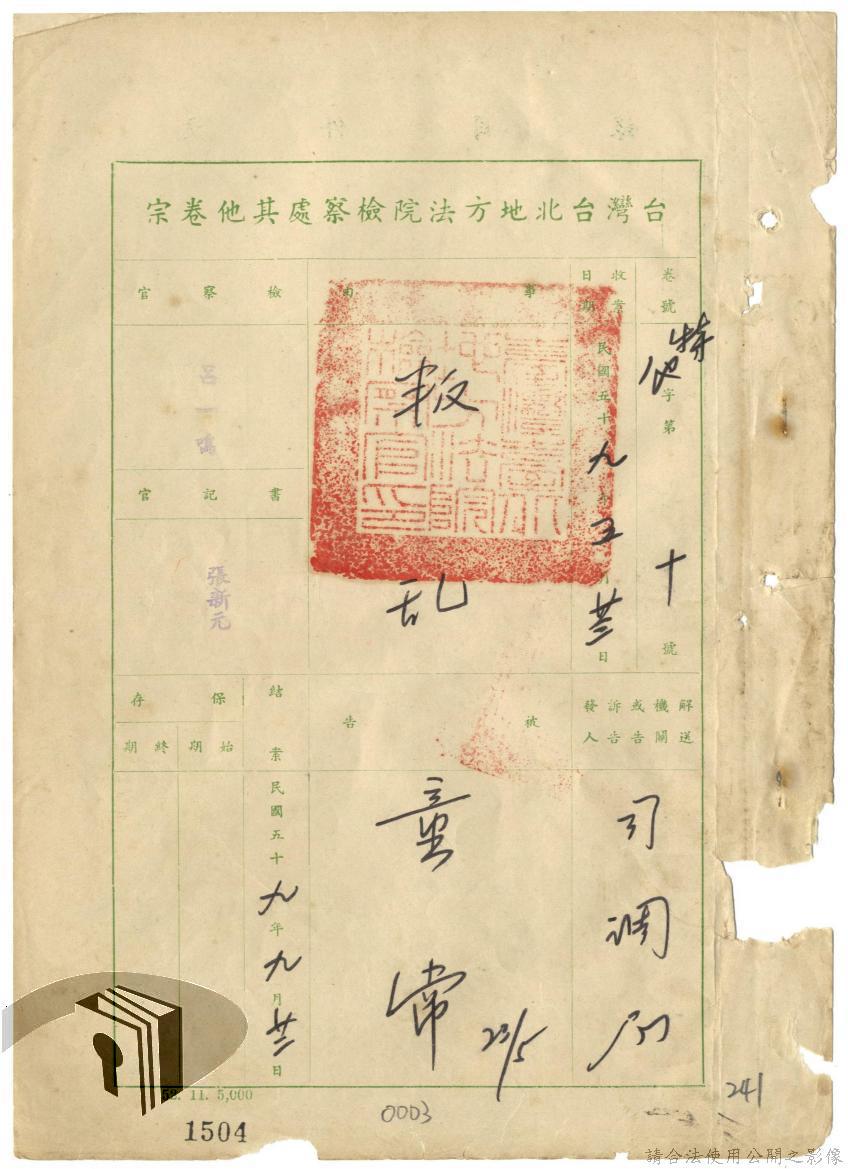 台灣台北地方法院檢察處其他卷宗
卷號
特他字第十號
收案日期
民國五十九年五月廿三日
事由
叛乱
檢察官
呂一鳴
書記官
張新元
解送機關或告訴告發人
司調局
被告
童常
23/5
結案
民國五十九年九月廿二日
保存
始期
終期
52. 11. 5,000
1504
0003
241
請合法使用公開之影像